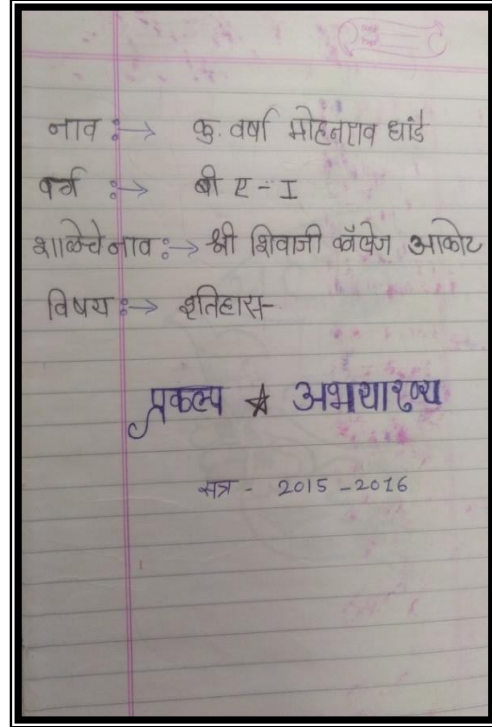 नाव :→ कु. वर्षा मोहनराव धांडे
वर्ग :→ बी ए - I
शाळेचे नाव :→ श्री शिवाजी कॉलेज आकोट
विषय :→ इतिहास-
प्रकल्प ★ अभयारण्य
सत्र - 2015 - 2016